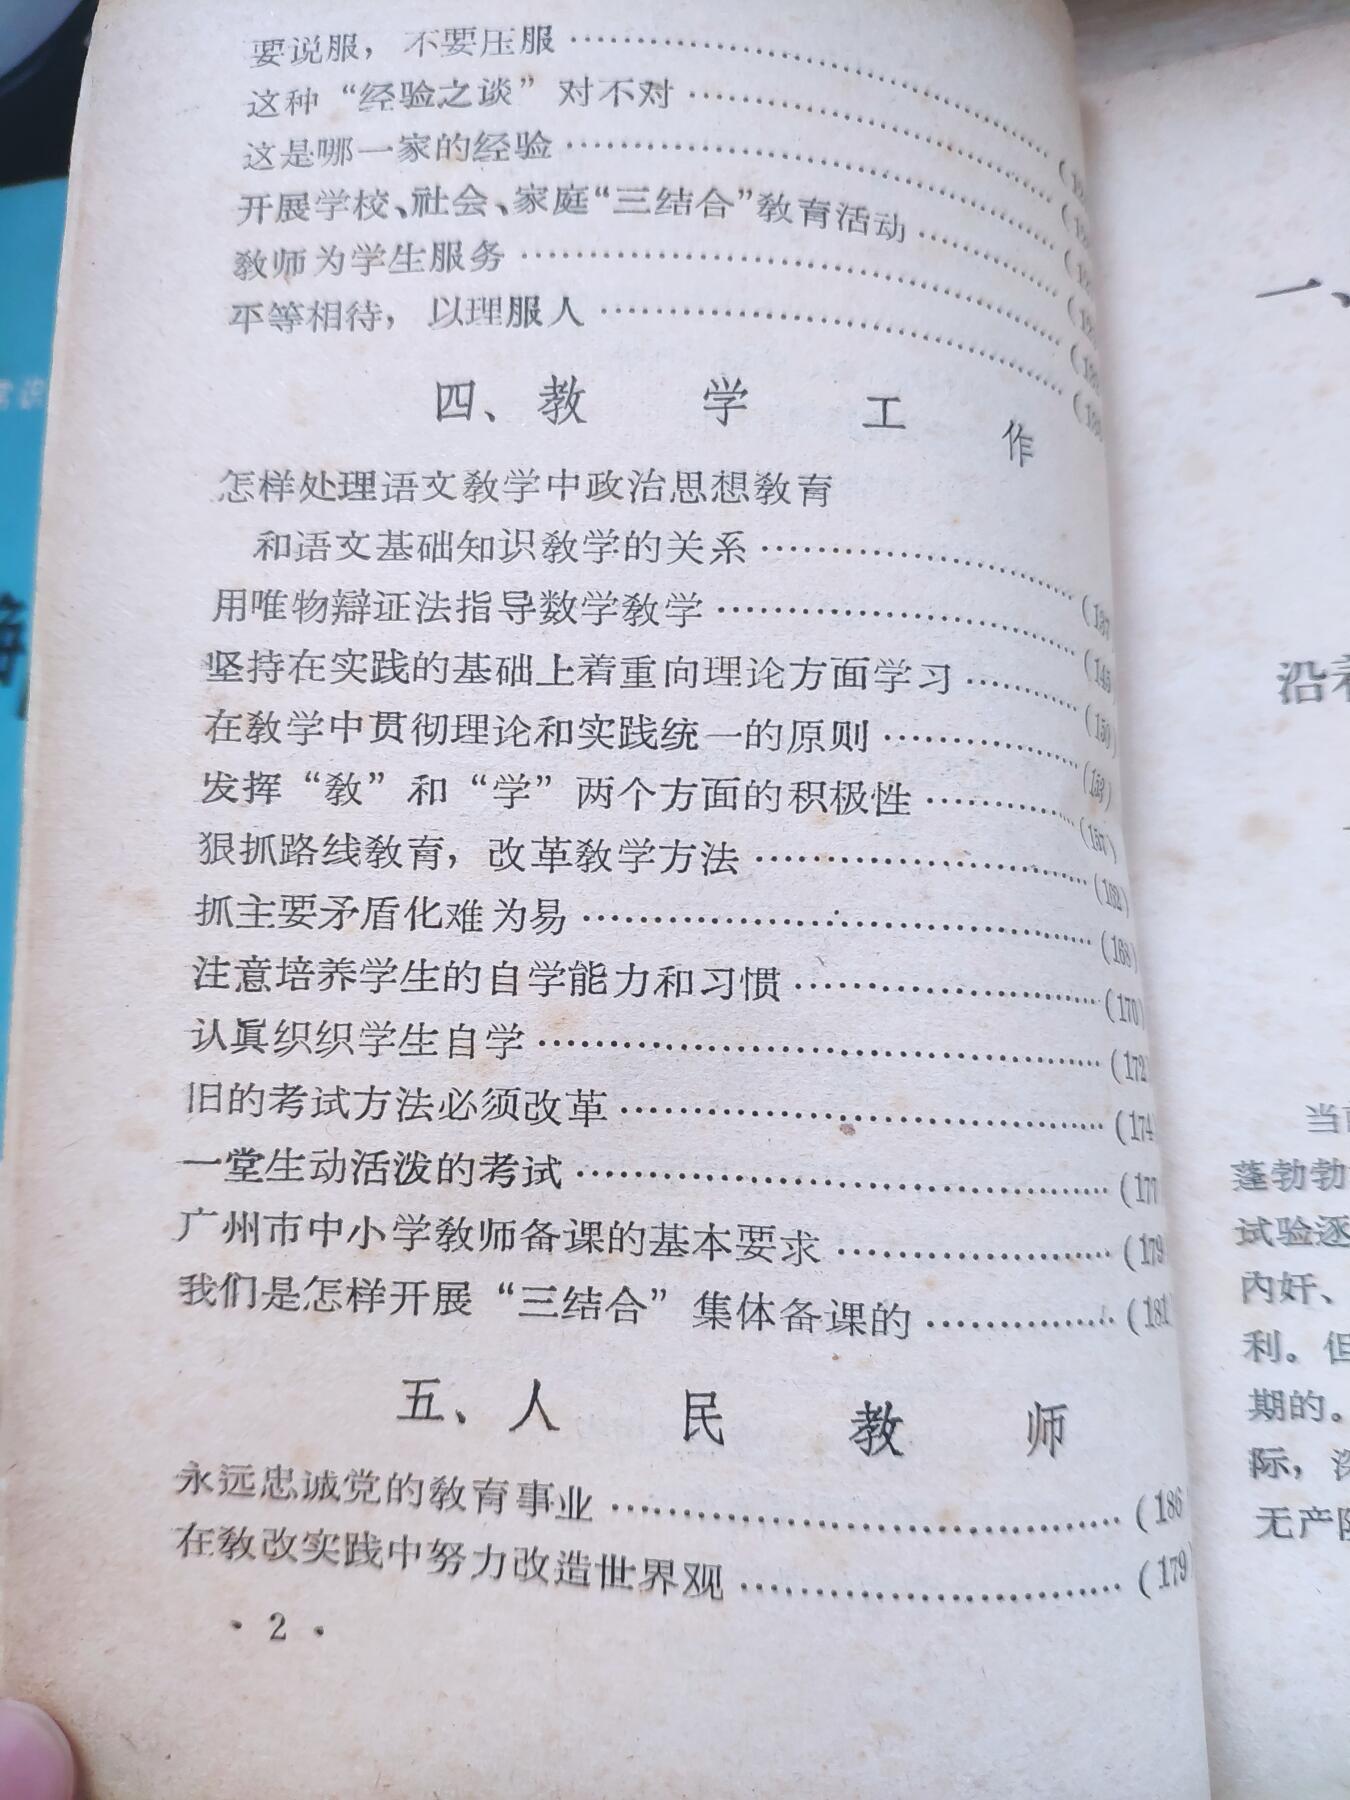 要说服，不要压服
这种“经验之谈”对不对
这是哪一家的经验
开展学校、社会、家庭“三结合”教育活动
教师为学生服务
平等相待，以理服人
四、教学工作
怎样处理语文教学中政治思想教育
和语文基础知识教学的关系 (137)
用唯物辩证法指导数学教学 (145)
坚持在实践的基础上着重向理论方面学习 (150)
在教学中贯彻理论和实践统一的原则 (153)
发挥“教”和“学”两个方面的积极性 (157)
狠抓路线教育，改革教学方法 (162)
抓主要矛盾化难为易 (168)
注意培养学生的自学能力和习惯 (170)
认真组织学生自学 (172)
旧的考试方法必须改革 (174
一堂生动活泼的考试 (177
广州市中小学教师备课的基本要求 (179
我们是怎样开展“三结合”集体备课的 (181)
五、人民教师
永远忠诚党的教育事业 (186)
在教改实践中努力改造世界观 (179)
·2·
一、
沿着
当前
蓬勃勃
试验逐
内奸、
利。但
期的。
际，深
无产阶